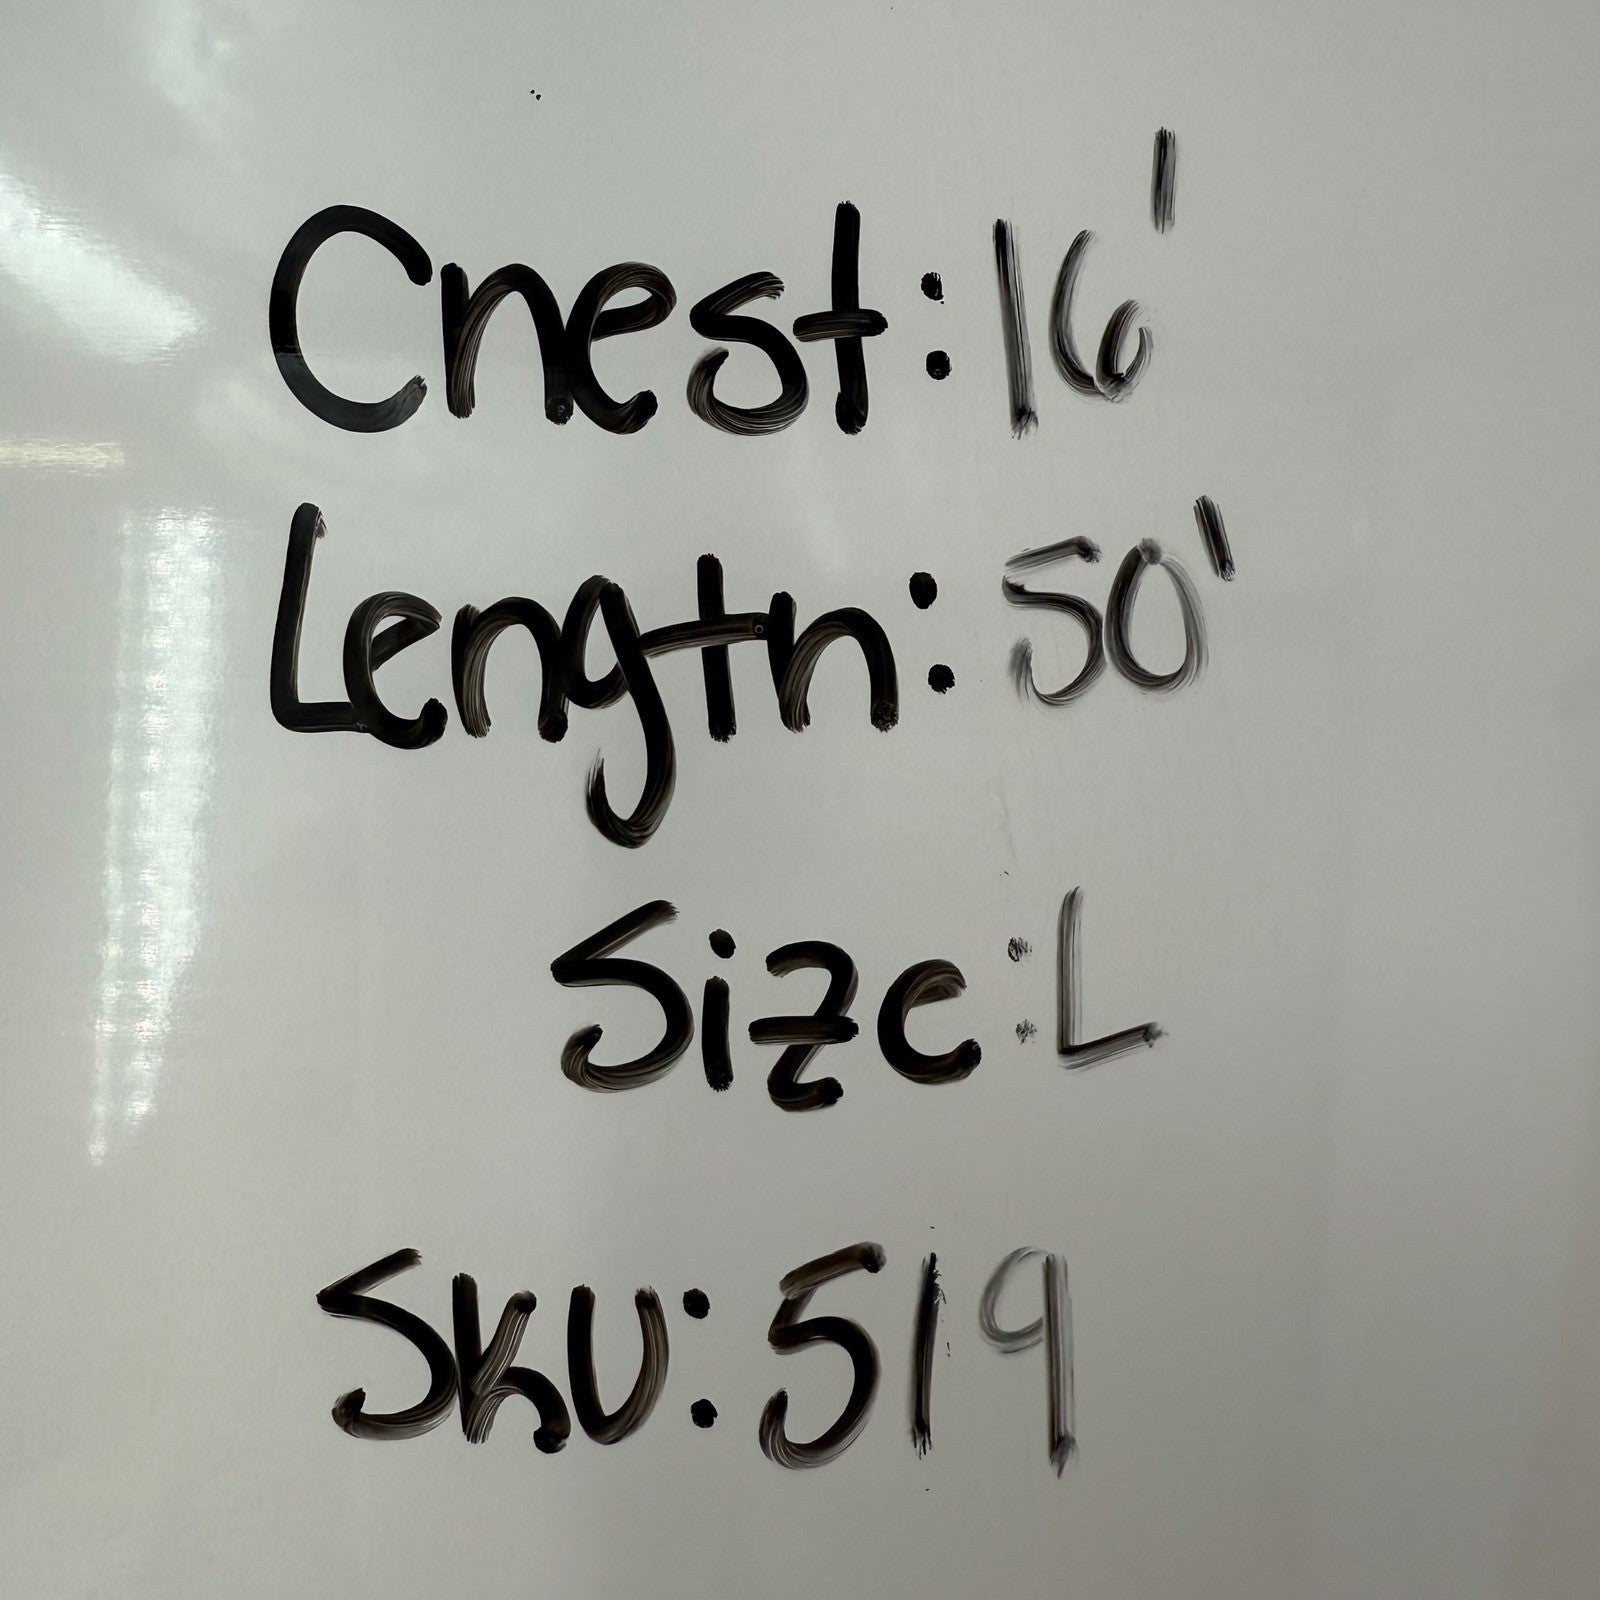 Chest: 16'
Length: 50'
Size: L
SKU: 519